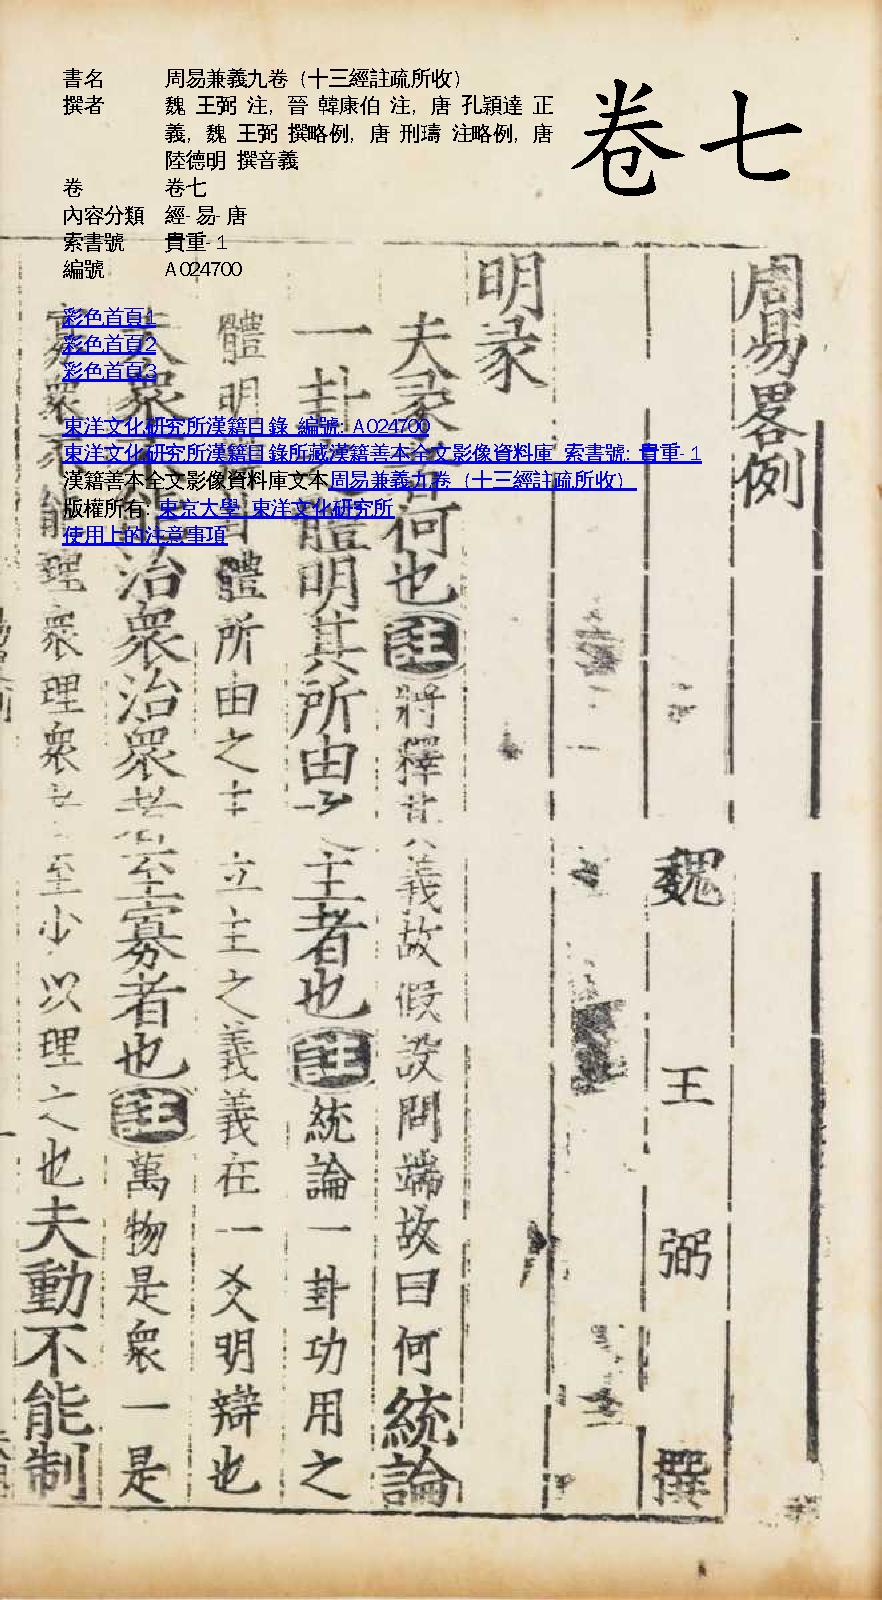 書名 周易兼義九卷 (十三經註疏所收)
撰者 魏 王弼 注, 晉 韓康伯 注, 唐 孔穎達 正
義, 魏 王弼 撰略例, 唐 刑璹 注略例, 唐
陸德明 撰音義
卷 卷七
內容分類 經-易-唐
索書號 貴重-1
編號 A024700
卷七
彩色首頁1
彩色首頁2
彩色首頁3
東洋文化研究所漢籍目錄 編號: A024700
東洋文化研究所漢籍目錄所藏漢籍善本全文影像資料庫 索書號: 貴重-1
漢籍善本全文影像資料庫文本周易兼義九卷 (十三經註疏所收)
版權所有: 東京大學 東洋文化研究所
使用上的注意事項
周易畧例
魏 王 弼 撰
明彖
夫彖者何也註將釋其義故假設問端故曰何統論
一卦之體明其所由之主者也註統論一卦功用之
體明辯卦體所由之主立主之義義在一爻明辯也
夫衆不能治衆治衆者至寡者也註萬物是衆一是
寡衆不能理衆理衆者至少以理之也夫動不能制